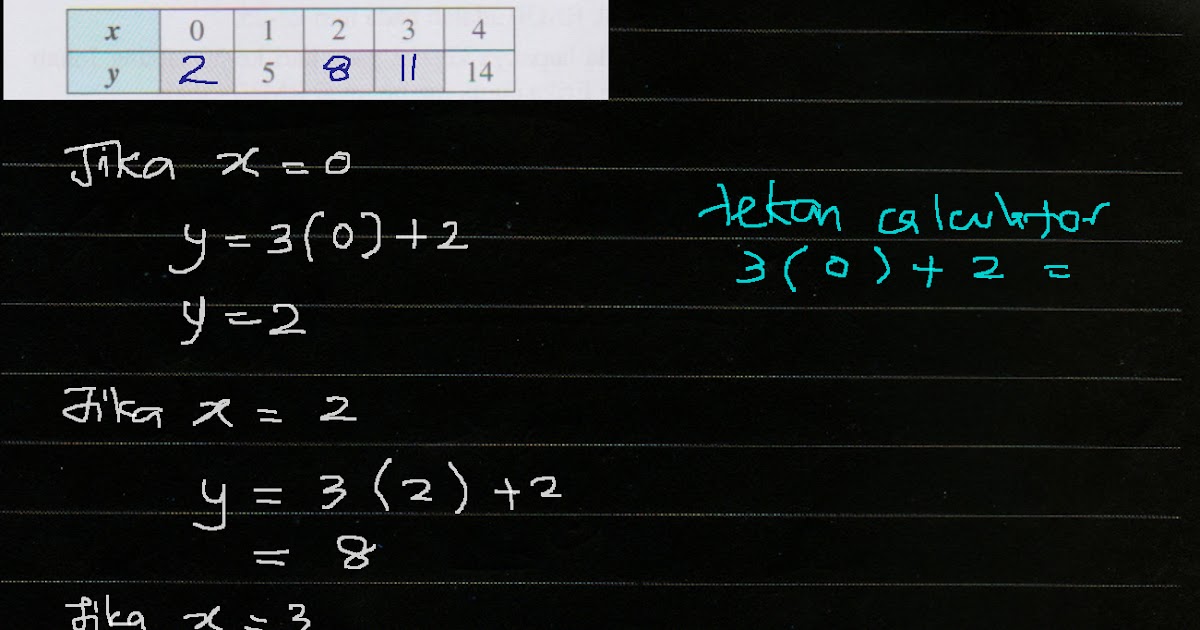 x 0 1 2 3 4
y 2 5 8 11 14
Jika x = 0
y = 3(0) + 2
y = 2
tekan calculator
3(0) + 2 =
Jika x = 2
y = 3(2) + 2
= 8
Jika x = 3